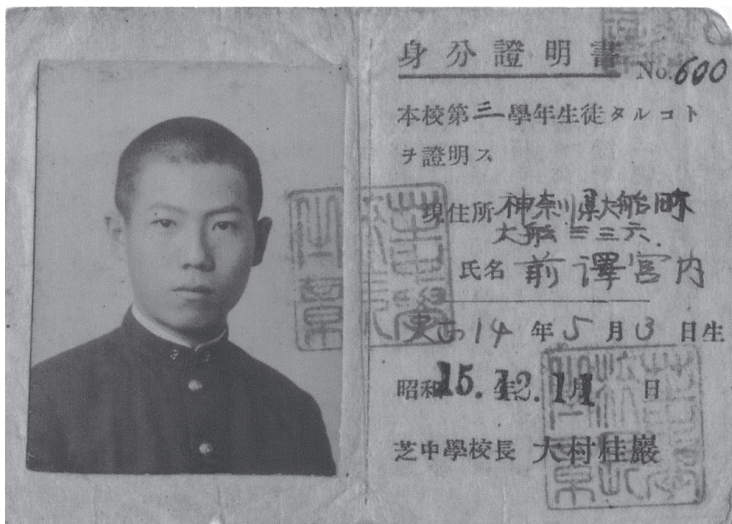 身分證明書
No.600
本校第三學年生徒タルコト
ヲ證明ス
現住所 神奈川県大船町
大船三三六
氏名 前澤宮内
14年5月3日生
昭和15.12.11日
芝中學校長 大村桂巖